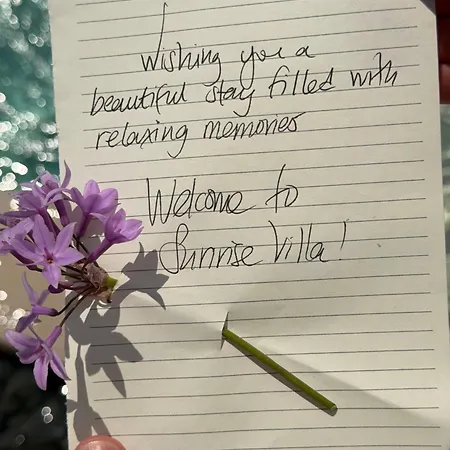 Wishing you a
beautiful stay filled with
relaxing memories
Welcome to
Sunrise Villa!